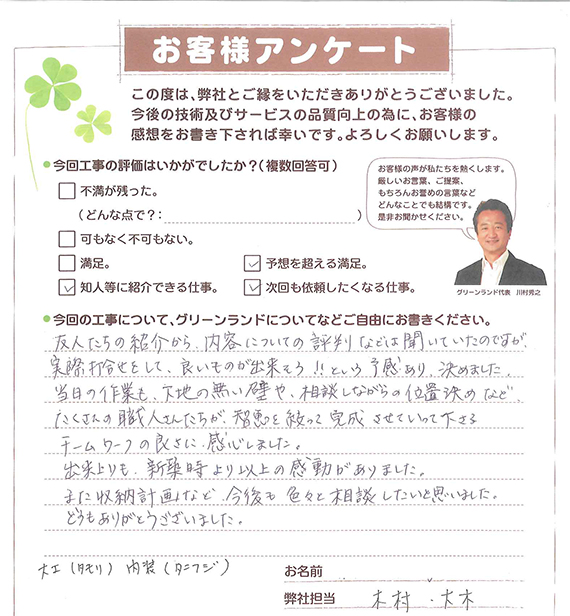 お客様アンケート
この度は、弊社とご縁をいただきありがとうございました。
今後の技術及びサービスの品質向上の為に、お客様の
感想をお書き下されば幸いです。よろしくお願いします。
●今回工事の評価はいかがでしたか?(複数回答可)
不満が残った。
(どんな点で?: )
可もなく不可もない。
満足。
予想を超える満足。
知人等に紹介できる仕事。
次回も依頼したくなる仕事。
お客様の声が私たちを熱くします。
厳しいお言葉、ご提案、
もちろんお誉めの言葉など
どんなことでも結構です。
是非お聞かせください。
グリーンランド代表 川村秀之
●今回の工事について、グリーンランドについてなどご自由にお書きください。
友人たちの紹介から、内容についての評判などは聞いていたのですが、
実際打合せをして、良いものが出来そう!!という予感あり、決めました。
当日の作業も、下地の無い壁や、相談しながらの位置決めなど、
たくさんの職人さんたちが、智恵を絞って完成させていって下さる
チームワークの良さに感心しました。
出来上りも、新築時より以上の感動がありました。
また収納計画など、今後も色々と相談したいと思いました。
どうもありがとうございました。
大工(タモリ) 内装(タニフジ)
お名前
弊社担当 木村、大木